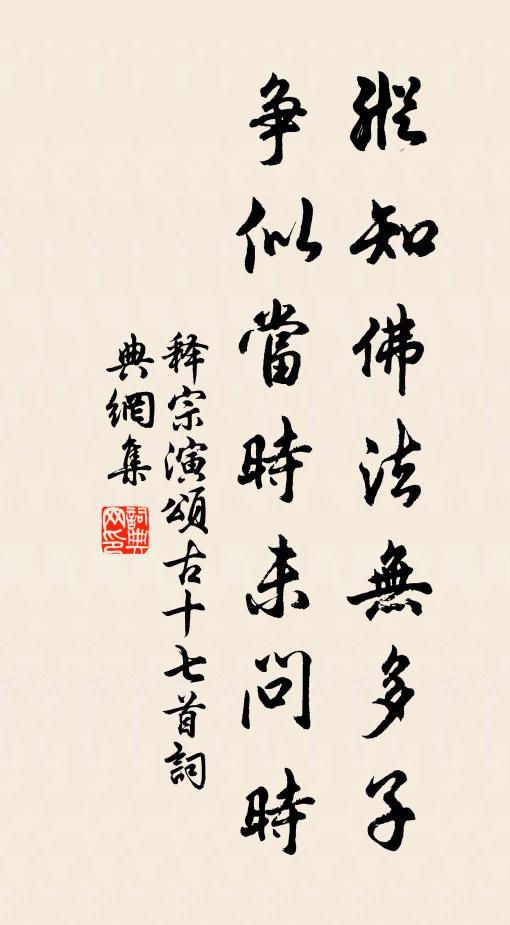 縱知佛法無多子
争似當時未問時
释宗演頌古十七首詞
典網集
詞典
网印